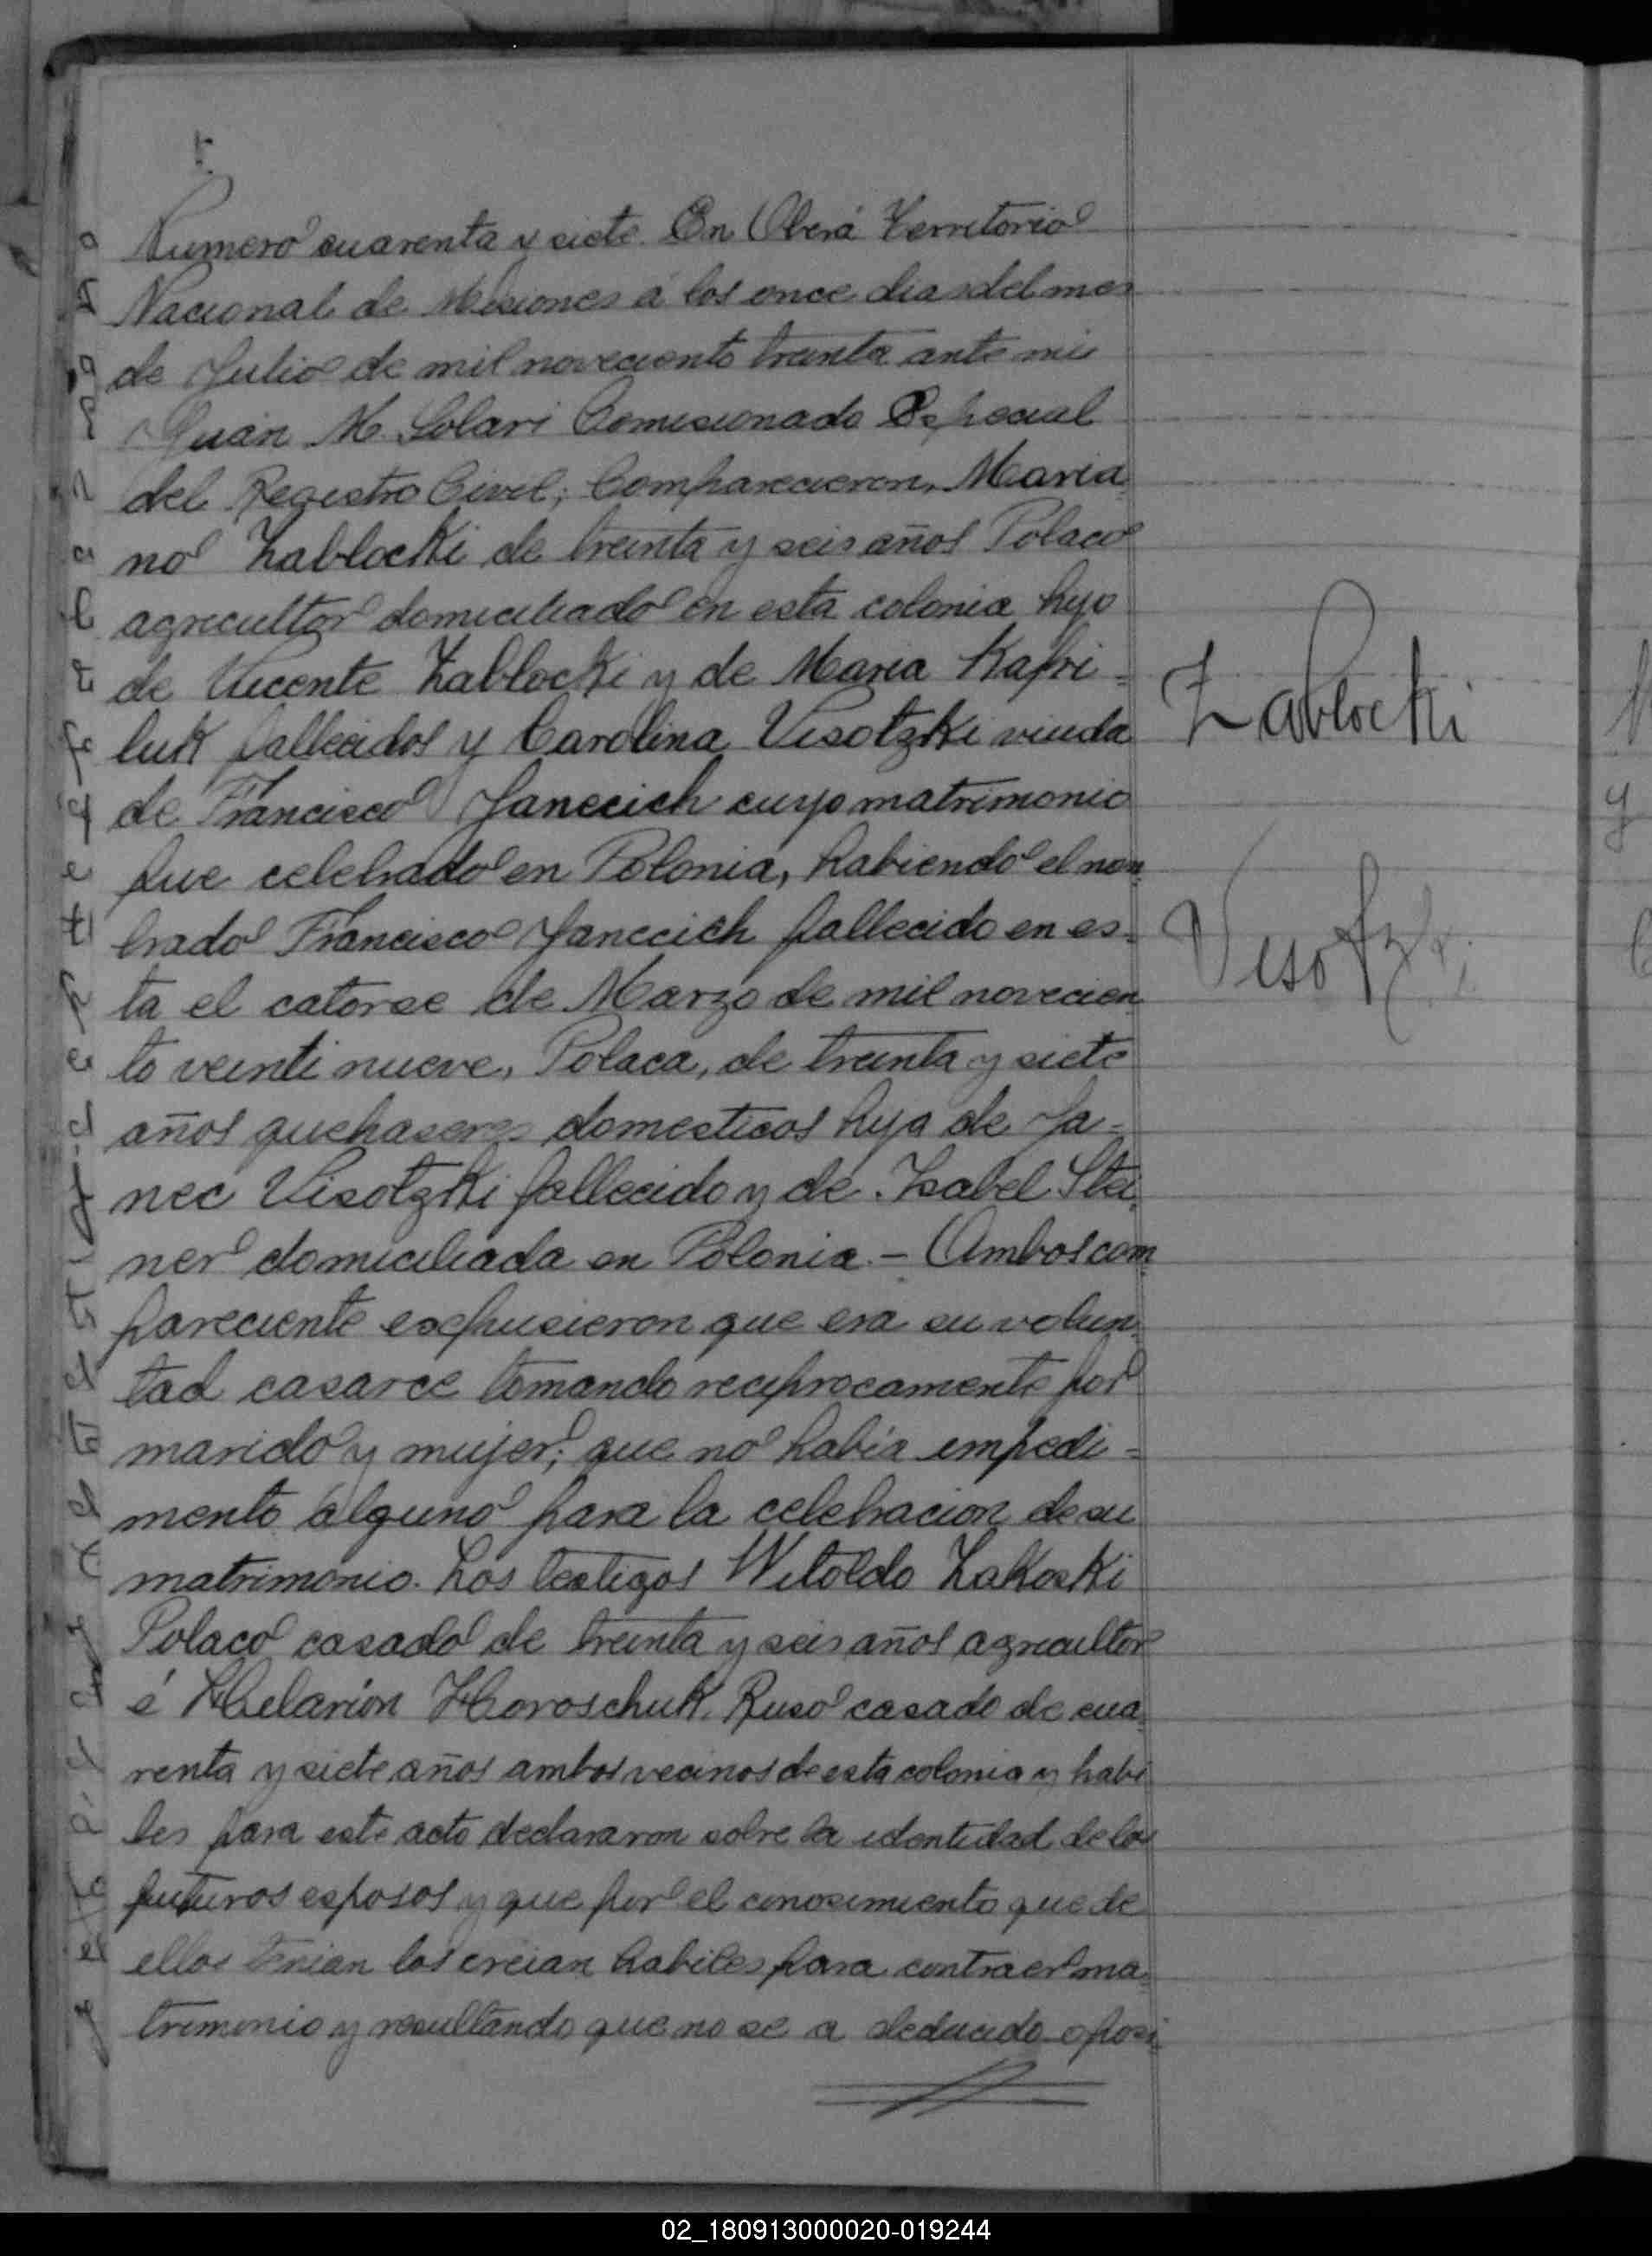 Numero cuarenta y siete. En Oberá Territorio
Nacional de Misiones á los once dias del mes
de Julio de mil noveciento treinta ante mi
Juan M. Solari Comisionado Especial
del Registro Civil, Comparecieron, Maria
no Zablocki de treinta y seis años Polaco
agricultor domiciliado en esta colonia hijo
de Vicente Zablocki y de Maria Kapri=
luk fallecidos y Carolina Visotzki viuda
de Francisco Janecich cuyo matrimonio
fue celebrado en Polonia, habiendo el nom
brado Francisco Janecich fallecido en es=
ta el catorse de Marzo de mil novecien
to veinti nueve, Polaca, de treinta y siete
años quehaseres domesticos hija de Ja=
nec Visotzki fallecido y de Isabel Stei
ner domiciliada en Polonia.- Ambos com
pareciente esepusieron que era su volun
tad casarce tomando reciprocamente por
marido y mujer; que no habia impedi=
mento alguno para la celebracion de su
matrimonio. Los testigos Witoldo Zakoski
Polaco casado de treinta y seis años agricultor
é Helarion Horoschuk, Ruso casado de cua
renta y siete años ambos vecinos de esta colonia y habi
les para este acto declararon sobre la identidad de los
futuros esposos y que por el conosimiento que de
ellos tenian los creian habiles para contraer ma
trimonio y resultando que no se a deducido oposi
Zablocki
y
Visotzki
02_180913000020-019244